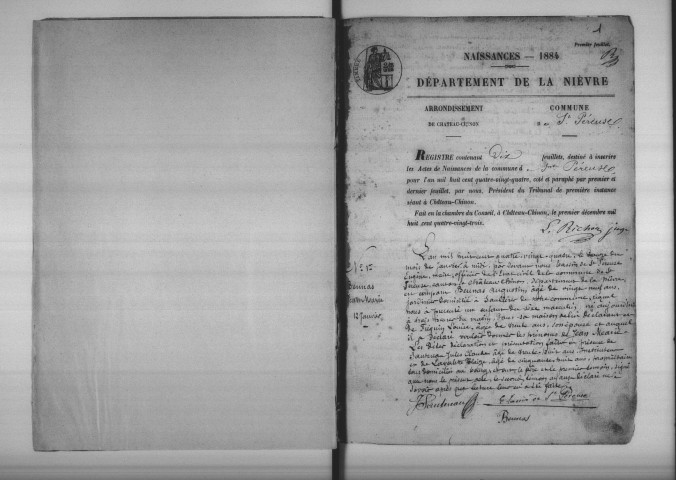 1
Premier feuillet
NAISSANCES — 1884
TIMBRE
DÉPARTEMENT DE LA NIÈVRE
ARRONDISSEMENT
DE CHATEAU-CHINON
COMMUNE
de St Péreuse
REGISTRE contenant Dix feuillets, destiné à inscrire
les Actes de Naissances de la commune de Péreuse
pour l'an mil huit cent quatre-vingt-quatre, coté et paraphé par premier et
dernier feuillet, par nous, Président du Tribunal de première instance
séant à Château-Chinon.
Fait en la chambre du Conseil, à Château-Chinon, le premier décembre mil
huit cent quatre-vingt-trois.
juge
N° 1er
Jean Marie
12 Janvier
L'an mil huit cent quatre vingt quatre, le douze du
mois de janvier à midi, par devant nous
Eugène, maire, officier de l'état civil de la commune de St
Péreuse, canton de Château Chinon, département de la Nièvre,
est comparu Augustin, âgé de vingt neuf ans,
jardinier domicilié à de notre commune, lequel
nous a présenté un enfant du sexe masculin, né aujourd'hui
à trois heures du matin, dans sa maison de lui déclarant et
de Louise, âgée de trente ans, son épouse et auquel
il a déclaré vouloir donner les prénoms de Jean Marie.
Les dites déclaration et présentation faites en présence de
Jules Claude âgé de trente huit ans, instituteur
et de âgé de cinquante huit ans, propriétaire
tous domiciliés au bourg, et ont le père et le premier témoin, signé
avec nous le présent acte, le second témoin ayant déclaré ne
savoir après que lecture leur en a été faite.